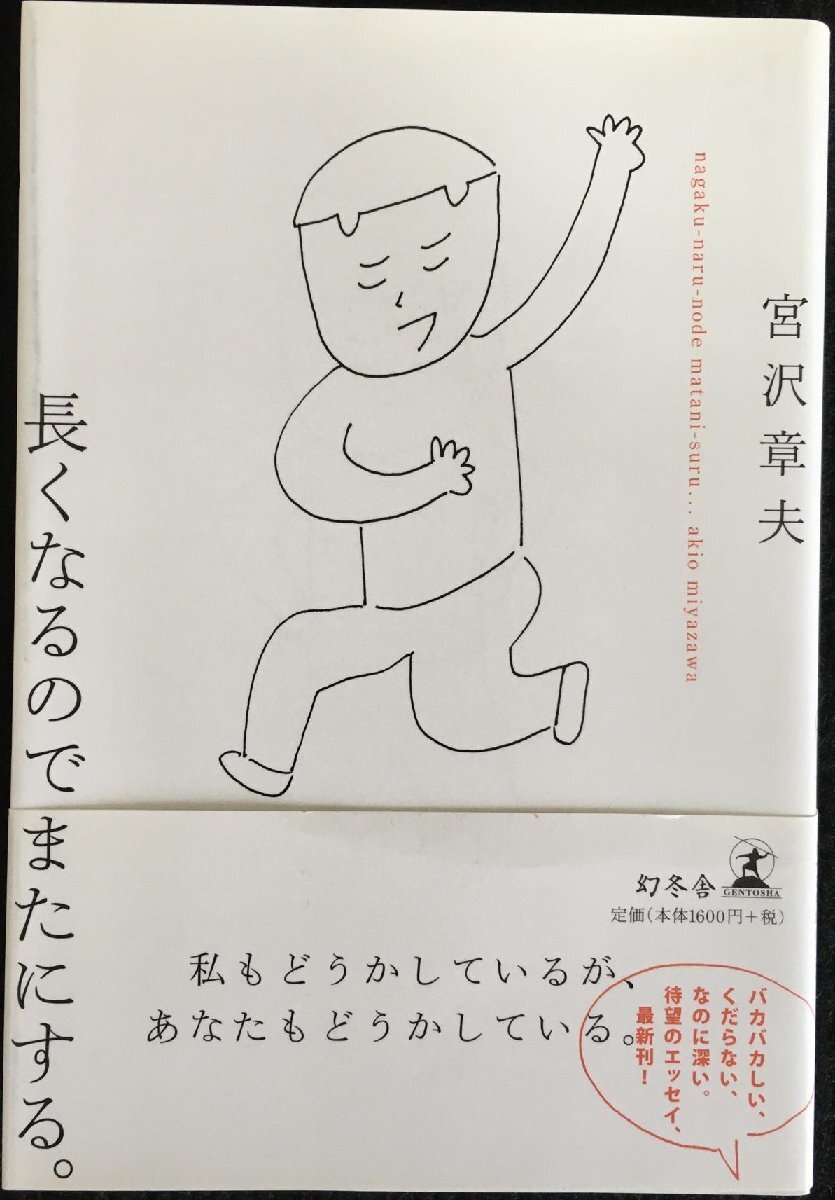 宮沢章夫
nagaku-naru-node matani-suru... akio miyazawa
長くなるのでまたにする。
幻冬舎
GENTOSHA
定価(本体1600円+税)
私もどうかしているが、
あなたもどうかしている。
バカバカしい、
くだらない、
なのに深い。
待望のエッセイ、
最新刊!